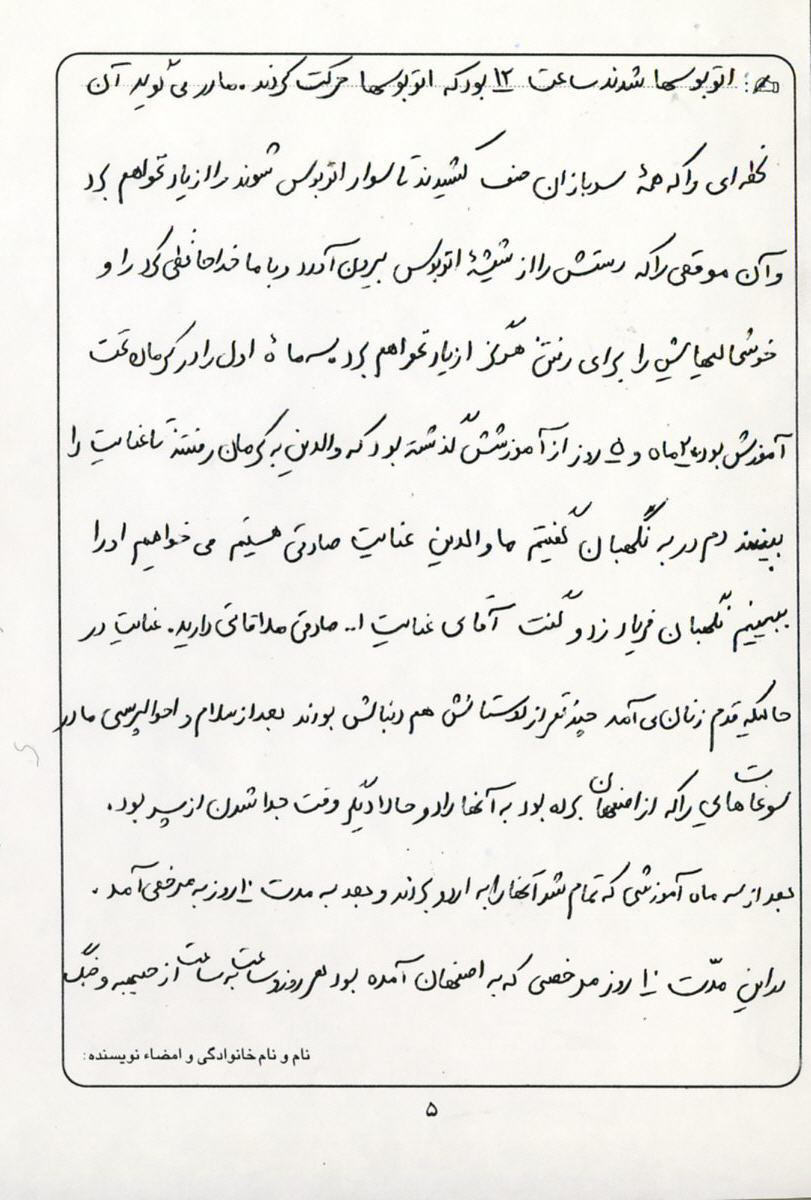 اتوبوسها شدند ساعت ۱۲ بود که اتوبوسها حرکت کردند. مادر می گوید آن
لحظه ای را که همهٔ سربازان صف کشیدند تا سوار اتوبوس شوند را از یاد نخواهم برد
و آن موقعی را که دستش را از شیشهٔ اتوبوس بیرون آورد و با ما خداحافظی کرد را و
خوشحالیهایش را برای رفتن هرگز از یاد نخواهم برد. سه ماه اول را در کرمان تحت
آموزش بود، ۲ ماه و ۵ روز از آموزشش گذشته بود که والدین به کرمان رفتند تا عنایت را
ببینند دم در به نگهبان گفتیم ما والدین عنایت صادقی هستیم می خواهیم او را
ببینیم نگهبان فریاد زد و گفت آقای عنایت ا... صادقی ملاقاتی دارید. عنایت در
حالیکه قدم زنان می آمد چند نفر از دوستانش هم دنبالش بودند بعد از سلام و احوالپرسی مادر
سوغات هایی را که از اصفهان برده بود به آنها داد و حالا دیگر وقت جدا شدن از پسر بود.
بعد از سه ماه آموزشی که تمام شد آنها را به اردو بردند و بعد به مدت ۱۰ روز به مرخصی آمد.
در این مدّت ۱۰ روز مرخصی که به اصفهان آمده بود هر روز و ساعت به ساعت از جبهه و جنگ
نام و نام خانوادگی و امضاء نویسنده:
۵